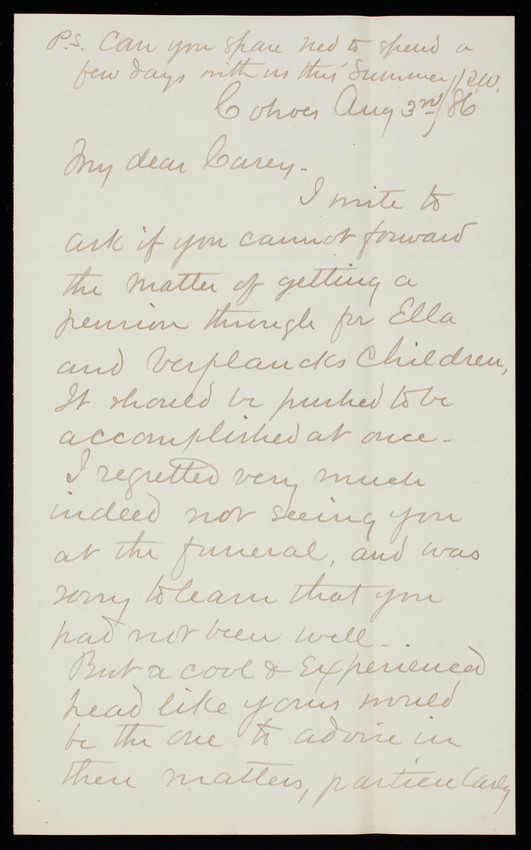 P.S. Can you spare Ned to spend a
few days with us this Summer / R.W.
Cohoes Aug 3rd / 86
My dear Casey -
I write to
ask if you cannot forward
the matter of getting a
pension through for Ella
and Verplancks Children,
It should be pushed to be
accomplished at once -
I regretted very much
indeed not seeing you
at the funeral, and was
sorry to learn that you
had not been well -
But a cool & Experienced
head like yours would
be the one to advise in
these matters, particularly